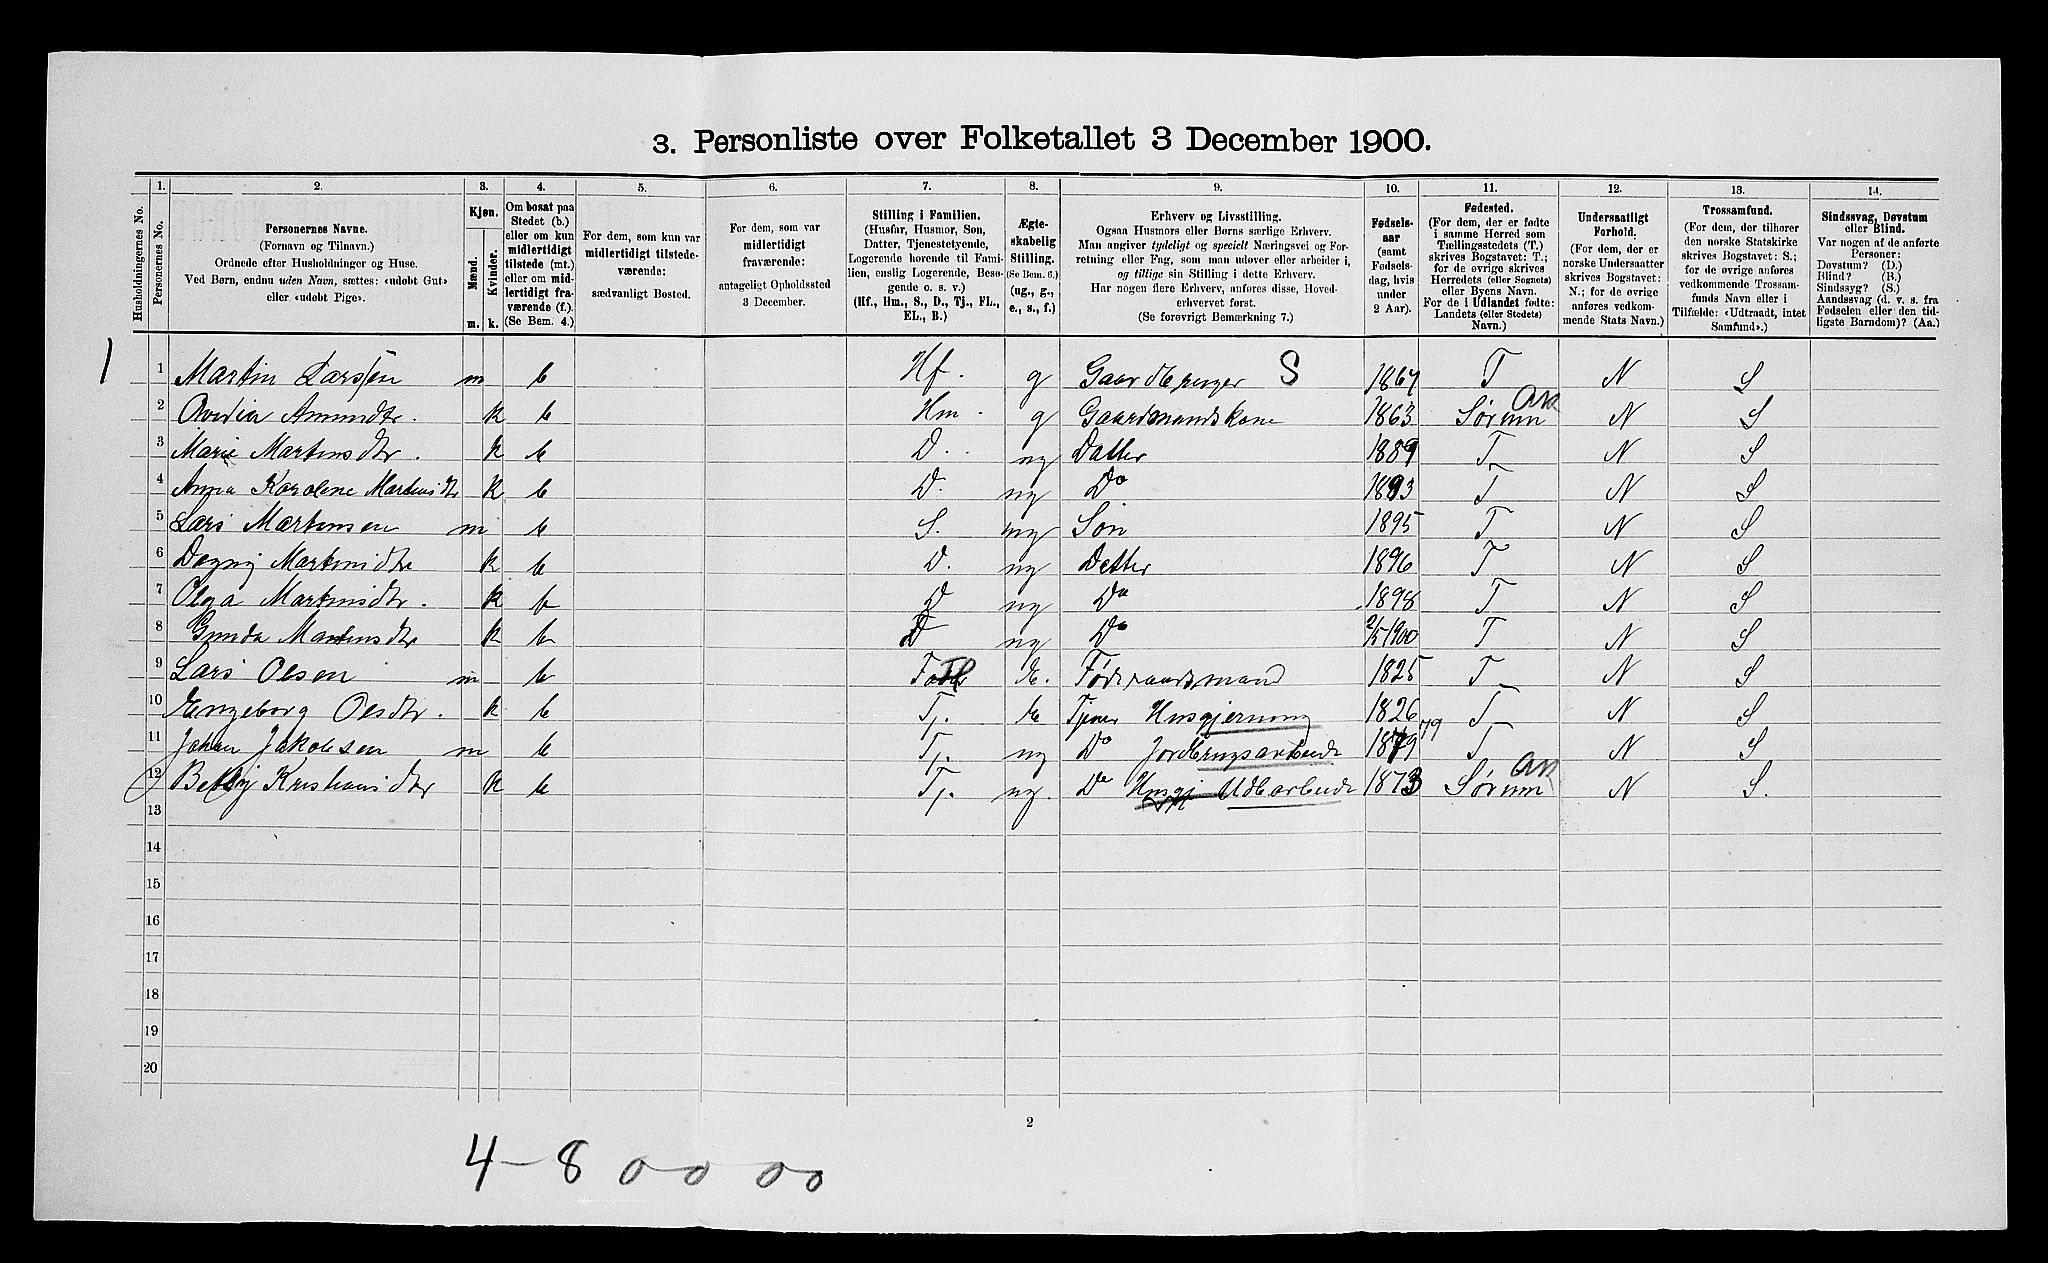 3. Personliste over Folketallet 3 December 1900.
Husholdningernes No.
1. Personernes No.
2. Personernes Navne. (Fornavn og Tilnavn.) Ordnede efter Husholdninger og Huse. Ved Børn, endnu uden Navn, sættes: «udøbt Gut» eller «udøbt Pige».
3. Kjøn. Mænd. m. Kvinder. k.
4. Om bosat paa Stedet (b.) eller om kun midlertidigt tilstede (mt.) eller om midlertidigt fraværende (f.) (Se Bem. 4.)
5. For dem, som kun var midlertidigt tilstedeværende: sædvanligt Bosted.
6. For dem, som var midlertidigt fraværende: antageligt Opholdssted 3 December.
7. Stilling i Familien. (Husfar, Husmor, Søn, Datter, Tjenestetyende, Logerende hørende til Familien, enslig Logerende, Besøgende o. s. v.) (Hf., Hm., S., D., Tj., FL., EL., B.)
8. Ægteskabelig Stilling. (Se Bem. 6.) (ug., g., e., s., f.)
9. Erhverv og Livsstilling. Ogsaa Husmors eller Børns særlige Erhverv. Man angiver tydeligt og specielt Næringsvei og Forretning eller Fag, som man udøver eller arbeider i, og tillige sin Stilling i dette Erhverv. Har nogen flere Erhverv, anføres disse, Hovederhvervet først. (Se forøvrigt Bemærkning 7.)
10. Fødselsaar (samt Fødselsdag, hvis under 2 Aar).
11. Fødested. (For dem, der er fødte i samme Herred som Tællingsstedets (T.) skrives Bogstavet: T.; for de øvrige skrives Herredets (eller Sognets) eller Byens Navn. For de i Udlandet fødte: Landets (eller Stedets) Navn.)
12. Undersaatligt Forhold. (For dem, der er norske Undersaatter skrives Bogstavet: N.; for de øvrige anføres vedkommende Stats Navn.)
13. Trossamfund. (For dem, der tilhører den norske Statskirke skrives Bogstavet: S.; for de øvrige anføres vedkommende Trossamfunds Navn eller i Tilfælde: «Udtraadt, intet Samfund».)
14. Sindssvag, Døvstum eller Blind. Var nogen af de anførte Personer: Døvstum? (D.) Blind? (B.) Sindssyg? (S.) Aandssvag (d. v. s. fra Fødselen eller den tidligste Barndom)? (Aa.)
1 1 Martin Larsen m b Hf. g Gaardbruger S 1867 T N S
2 Ovidia Amundtr. k b Hm. g Gaardmandskone 1863 Sørum Ak N S
3 Marie Martinsdtr. k b D. ug Datter 1889 T N S
4 Anna Karoline Martinsdtr k b D. ug Do 1893 T N S
5 Lars Martinsen m b S. ug Søn 1895 T N S
6 Dagny Martinsdtr k b D. ug Datter 1896 T N S
7 Olga Martinsdtr. k b D ug Do 1898 T N S
8 Gunda Martinsdtr k b D ug Do 2/5 1900 T N S
9 Lars Olsen m b E. Føderaadsmand 1825 T N S
10 Engeborg Olsdtr. k b Tj. E Tjener Husgjerning 1826 T N S
11 Johan Jakobsen m b Tj. ug Do Jordbrugsarbeide 1879 79 T N S
12 Betsy Kristiansdtr k b Tj. ug. Do Husgj Udearbeide 1873 Sørum Ak N S.
13
14
15
16
17
18
19
20
2
4 - 8 0 0 0 0